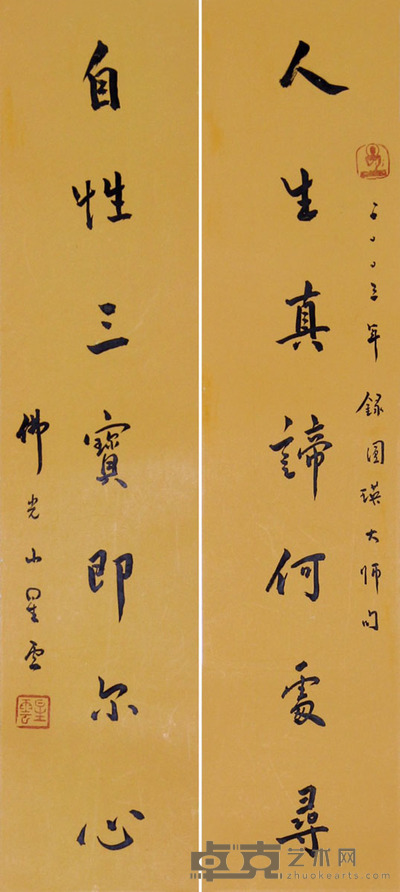 人生真諦何處尋
二〇〇三年錄圓瑛大師句
自性三寶即尔心
佛光山星雲
星雲
卓克艺术网
zhuokearts.com